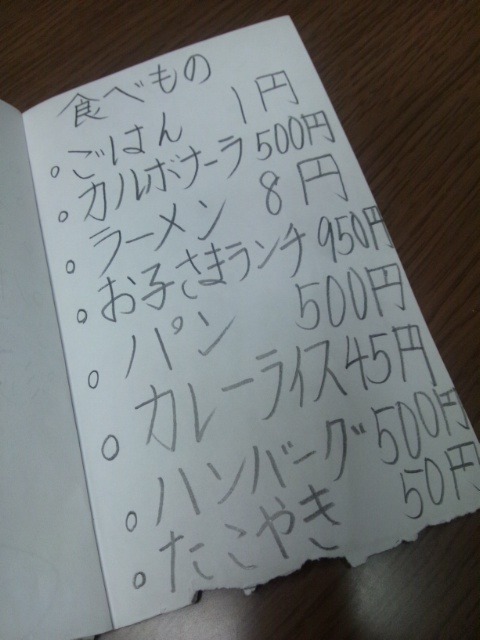 食べもの
。ごはん 1円
。カルボナーラ 500円
。ラーメン 8円
。お子さまランチ 950円
。パン 500円
。カレーライス 45円
。ハンバーグ 500円
。たこやき 50円